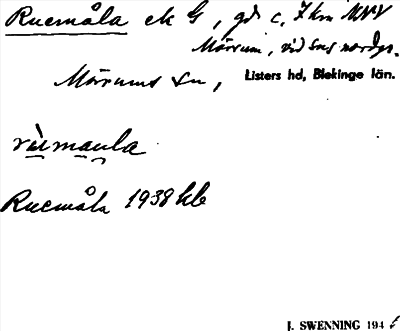 Ruemåla ek G, gd c. 7 km NNV
Mörrum, vid sns nordgr.
Mörrums sn, Listers hd, Blekinge län.
rùmaula
Ruemåla 1938 kb
J. SWENNING 194